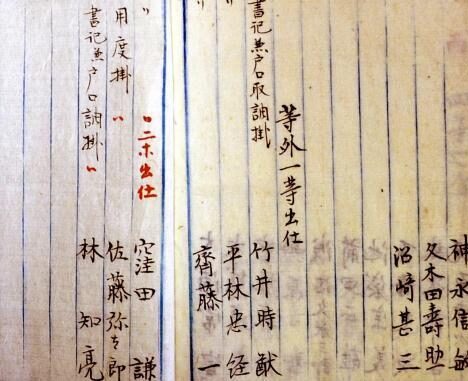 神永信敏
久木田壽助
沼崎甚三
等外一等出仕
竹井時猷
書记兼戸口取調掛
平林忠経
齊藤一
〃二ホ出仕
窪田謙
用度掛〃
佐藤弥太郎
書记兼戸口調掛〃
林知亮